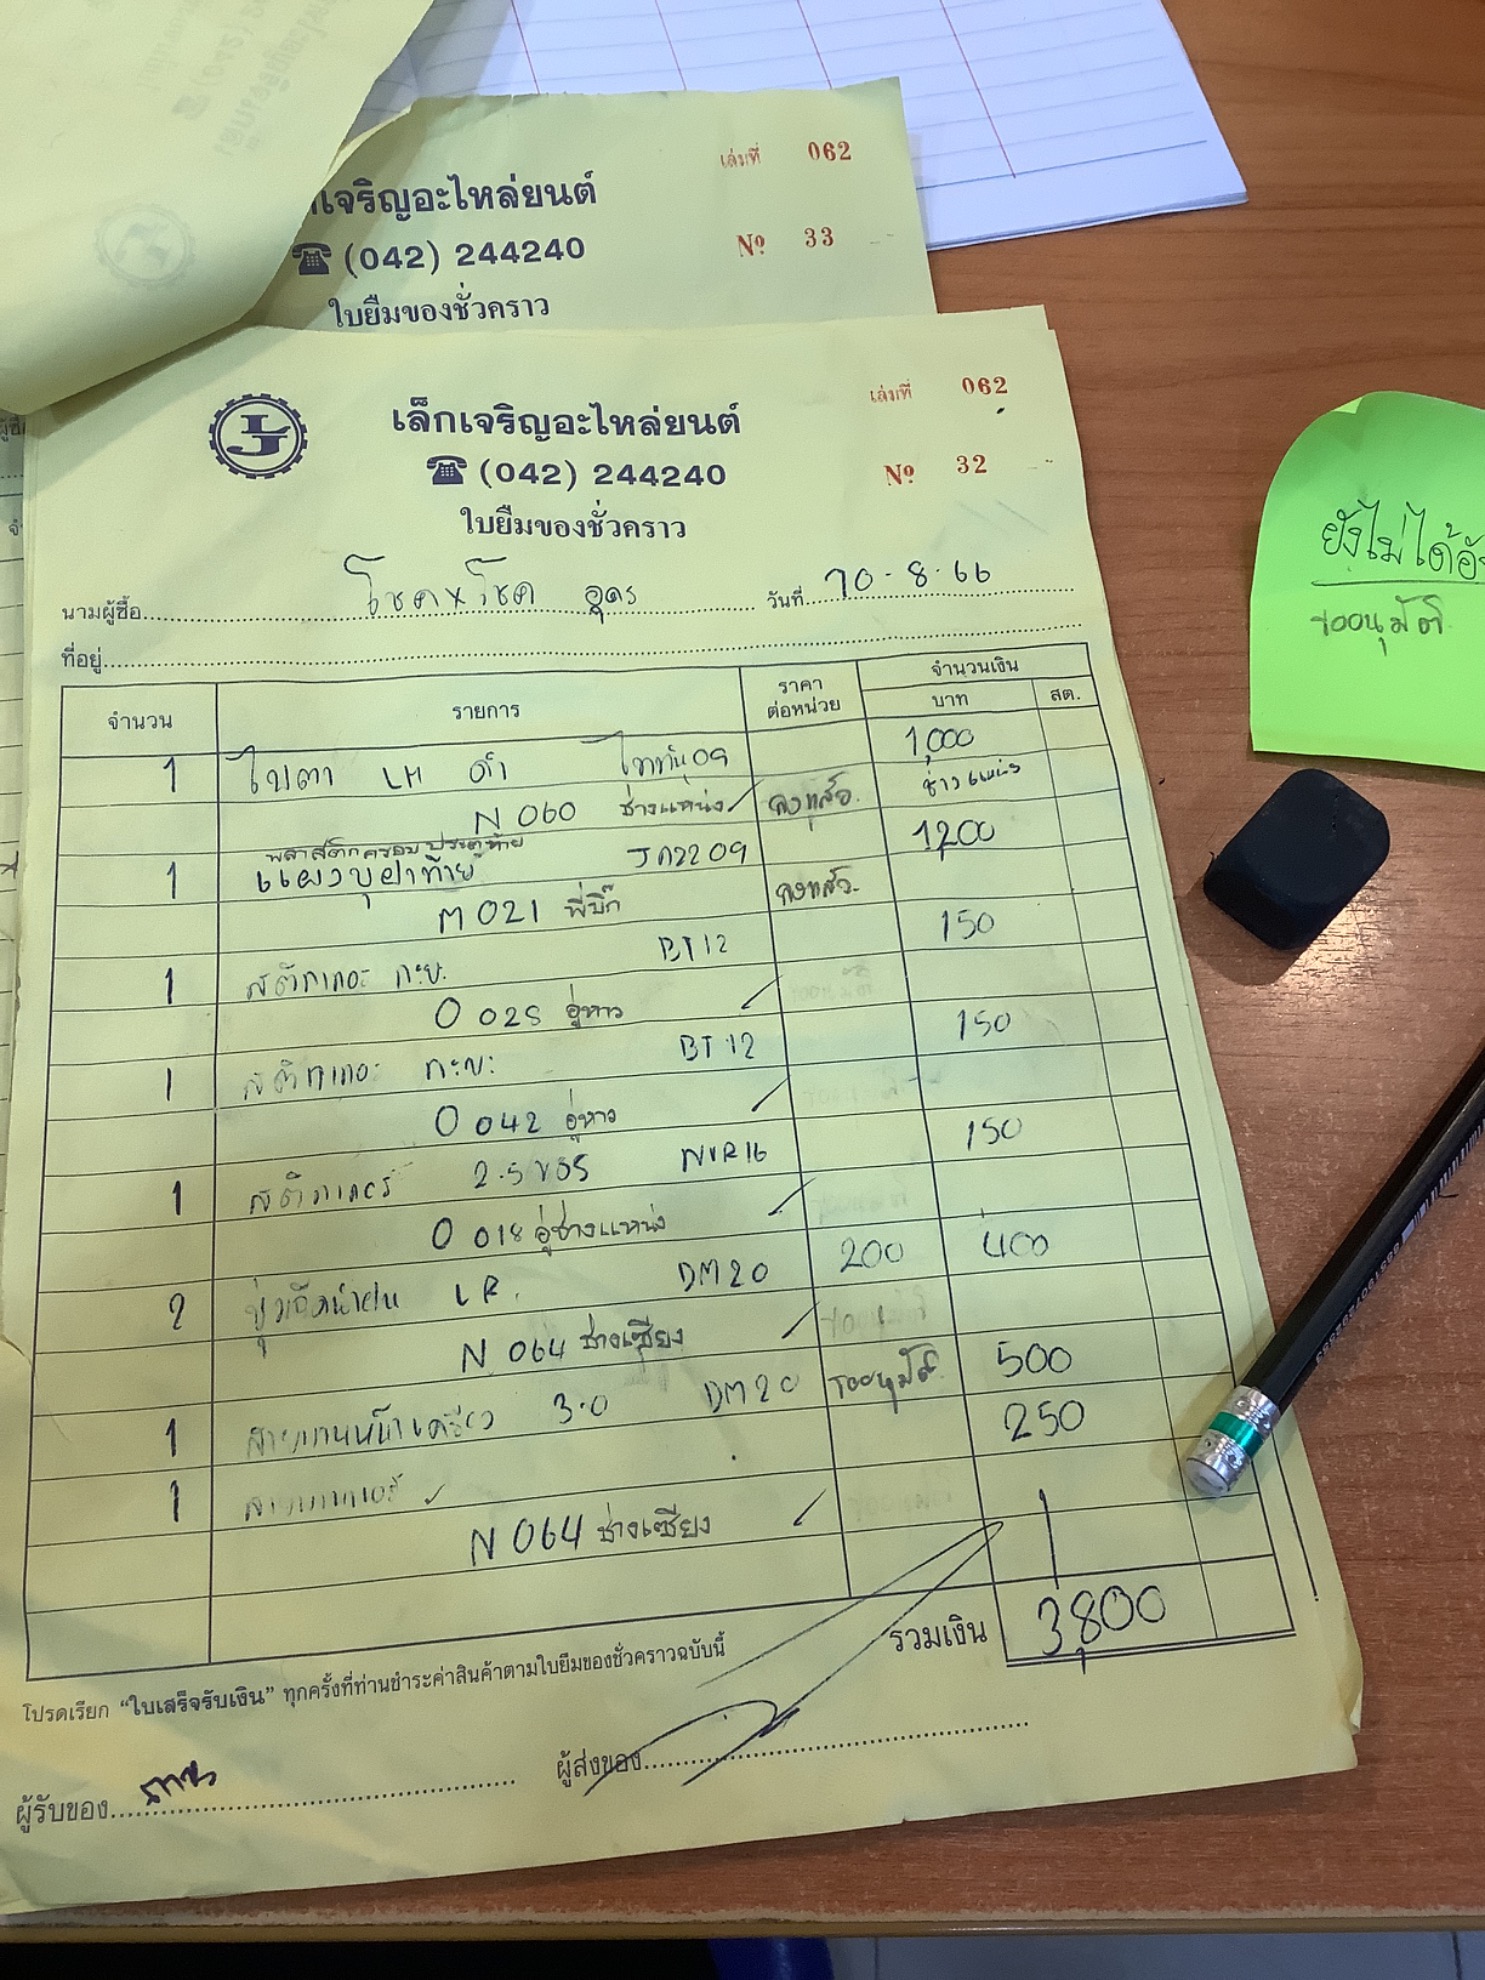 เล่มที่ 062
เจริญอะไหล่ยนต์
(042) 244240
Nº 33
ใบยืมของชั่วคราว
เล็กเจริญอะไหล่ยนต์
เล่มที่ 062
(042) 244240
Nº 32
ใบยืมของชั่วคราว
นามผู้ซื้อ โชค x โชค อุดร วันที่ 10-8-66
ที่อยู่
จำนวน รายการ ราคาต่อหน่วย จำนวนเงิน
บาท สต.
1 ไฟตา LH ดำ ไททัน09 1,000
N 060 ช่างแหน่ง คงแล้ว. ช่างแหน่ง
พลาสติกครอบประตูท้าย
1 แผงบุฝาท้าย JA2209 1,200
M 021 พี่บิ๊ก คงแล้ว.
1 สติกเกอร์ กะบะ BT12 150
0 028 อู่หาว
1 สติกเกอร์ กะบะ BT12 150
0 042 อู่หาว
1 สติกเกอร์ 2.5 NVR16 150
0 018 อู่ช่างแหน่ง
2 LR. DM20 200 400
N 064 ช่างเซียง
1 3.0 DM20 รออนุมัติ 500
1 250
N 064 ช่างเซียง
รวมเงิน 3,800
โปรดเรียก “ใบเสร็จรับเงิน” ทุกครั้งที่ท่านชำระค่าสินค้าตามใบยืมของชั่วคราวฉบับนี้
ผู้รับของ ผู้ส่งของ
ยังไม่ได้
รออนุมัติ